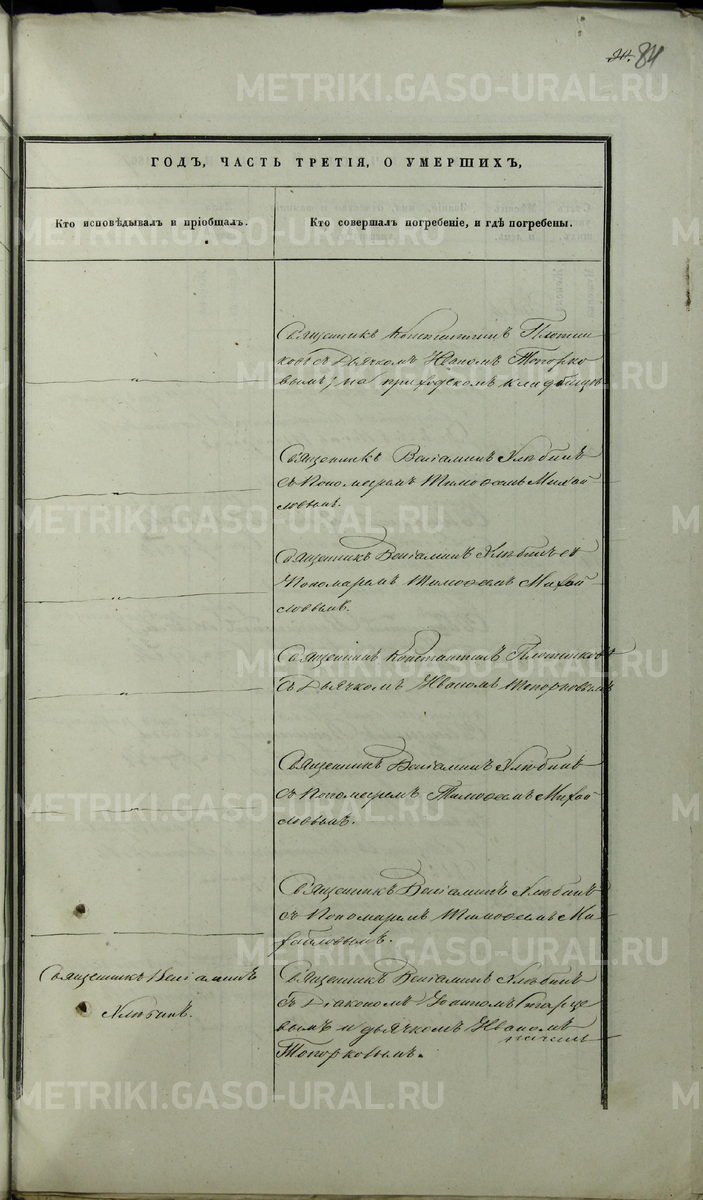 84
ГОДЪ, ЧАСТЬ ТРЕТІЯ, О УМЕРШИХЪ,
Кто исповѣдывалъ и пріобщалъ.
Кто совершалъ погребеніе, и гдѣ погребены.
Священникъ Константинъ Плотни
ковъ съ Дьячкомъ Иваномъ Топорко
вымъ, на приходскомъ кладбищѣ
Священникъ Веніаминъ Хлѣбинъ
съ Пономаремъ Тимофеемъ Михай
ловымъ.
Священникъ Веніаминъ Хлѣбинъ съ
Пономаремъ Тимофеемъ Михай
ловымъ.
Священник Константинъ Плотниковъ
съ Дьячкомъ Иваномъ Топорковымъ
Священникъ Веніаминъ Хлѣбинъ
съ Пономаремъ Тимофеемъ Михай
ловымъ.
Священникъ Веніаминъ Хлѣбинъ
съ Пономаремъ Тимофеемъ Ми
хайловымъ.
Священникъ Веніаминъ
Хлѣбинъ.
Священникъ Веніаминъ Хлѣбинъ
съ Діакономъ Іоанномъ
вымъ и дьячкомъ Иваномъ
Топорковымъ.
METRIKI.GASO-URAL.RU